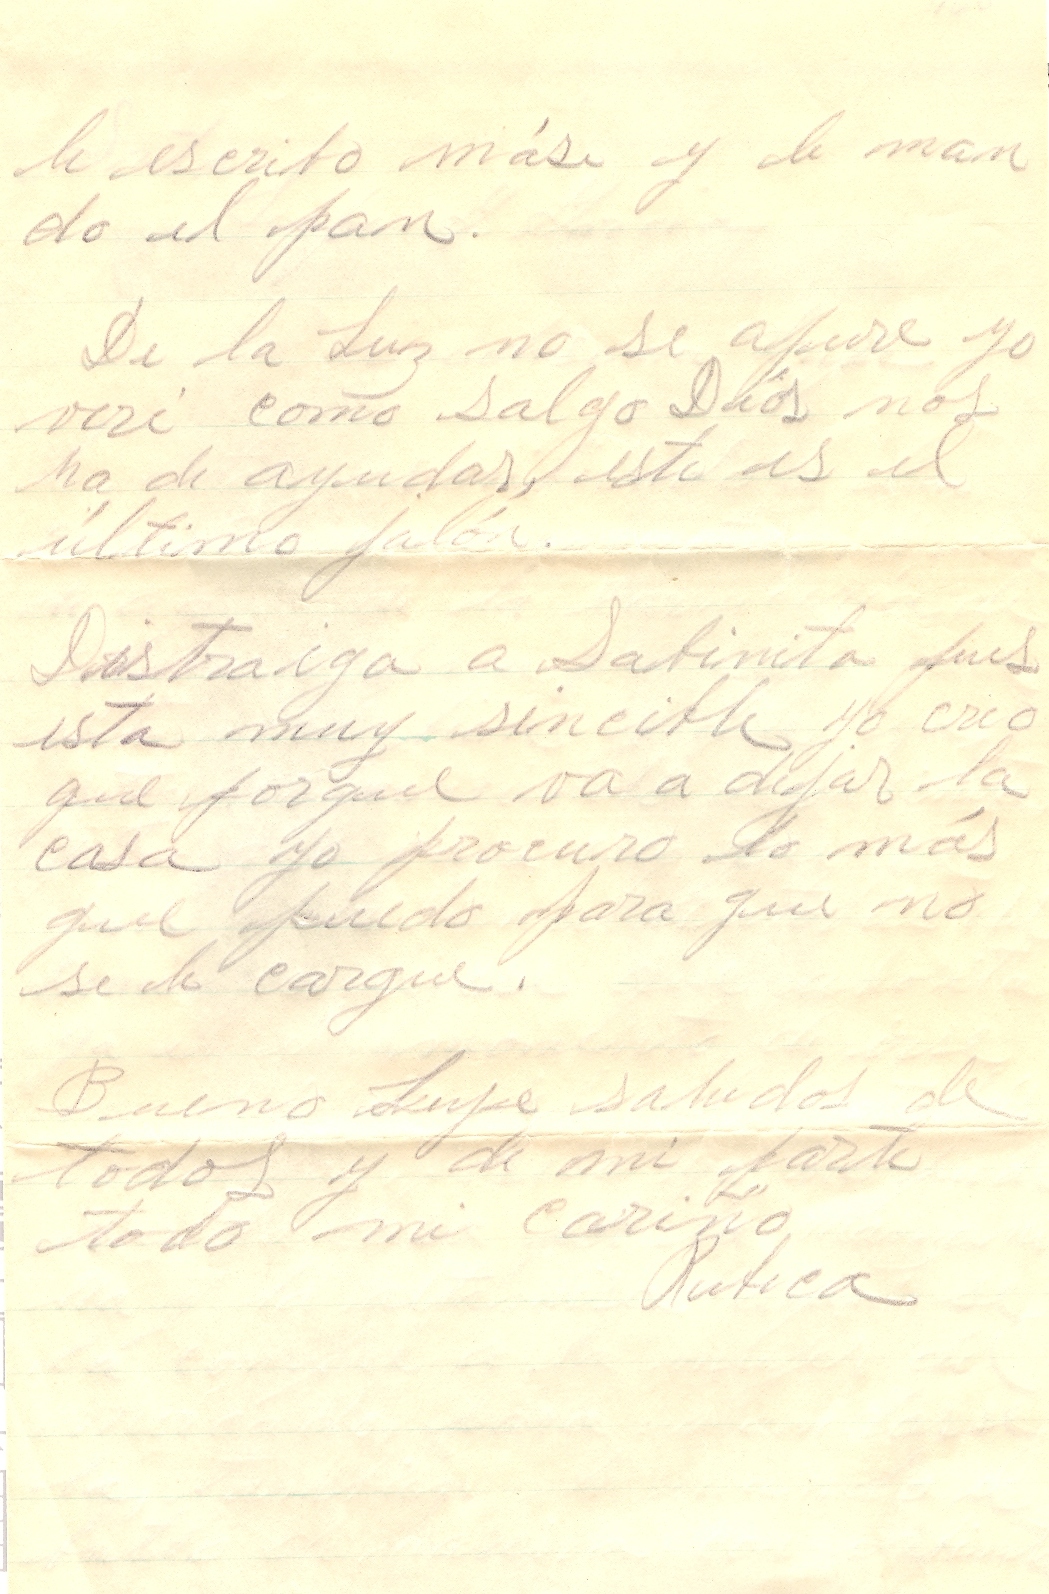 le escrito máse y le man
do el pan.
De la Luz no se apure yo
veré como salgo Diós nos
ha de ayudar, este es el
último jalón.
Distraiga a Sabinita pues
esta muy sincible yo creo
que porque va a dejar la
casa yo procuro lo más
que puedo para que no
se le cargue.
Bueno Lupe saludos de
todos y de mi parte
todo mi cariño